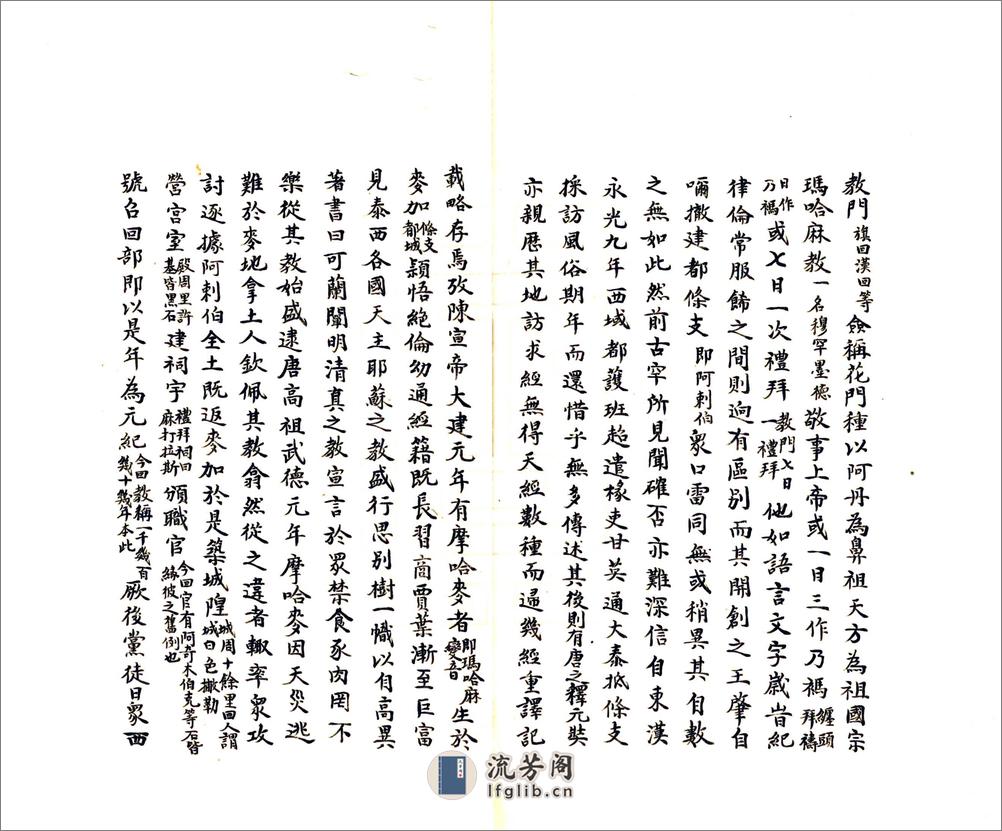 教門旗回漢回等僉稱花門種以阿丹為鼻祖天方為祖國宗
瑪哈麻教一名穆罕墨德敬事上帝或一日三作乃禡纏頭拜禱
日作乃禡或七日一次禮拜教門七日一禮拜他如語言文字歲時紀
律倫常服飾之間則迥有區別而其開創之王肇自
嚙撒建都條支即阿剌伯衆口雷同無或稍異其自數
之無如此然前古罕所見聞確否亦難深信自東漢
永光九年西域都護班超遣椽吏甘英通大秦抵條支
採訪風俗期年而還惜乎無多傳述其後則有唐之釋元奘
亦親歷其地訪求經無得天經數種而還幾經重譯記
載略存焉攷陳宣帝大建元年有摩哈麥者即瑪哈麻變音生於
麥加條支都城穎悟絕倫幼通經籍既長習商賈業漸至巨富
見泰西各國天主耶蘇之教盛行思別樹一幟以自高異
著書曰可蘭闡明清真之教宣言於眾禁食豕肉罔不
樂從其教始盛逮唐高祖武德元年摩哈麥因天災逃
難於麥地拿土人欽佩其教翕然從之違者輒率衆攻
討逐據阿剌伯全土既返麥加於是築城隍城周十餘里回人謂城曰色撒勒
營宮室殿周里許基皆黑石建祠宇禮拜祠回麻打拉斯頒職官今回官有阿奇木伯克等名皆緣彼之舊例也
號召回部即以是年為元紀今回教稱一千幾百幾十幾年本此厥後黨徒日衆西
流芳阁
lfglib.cn